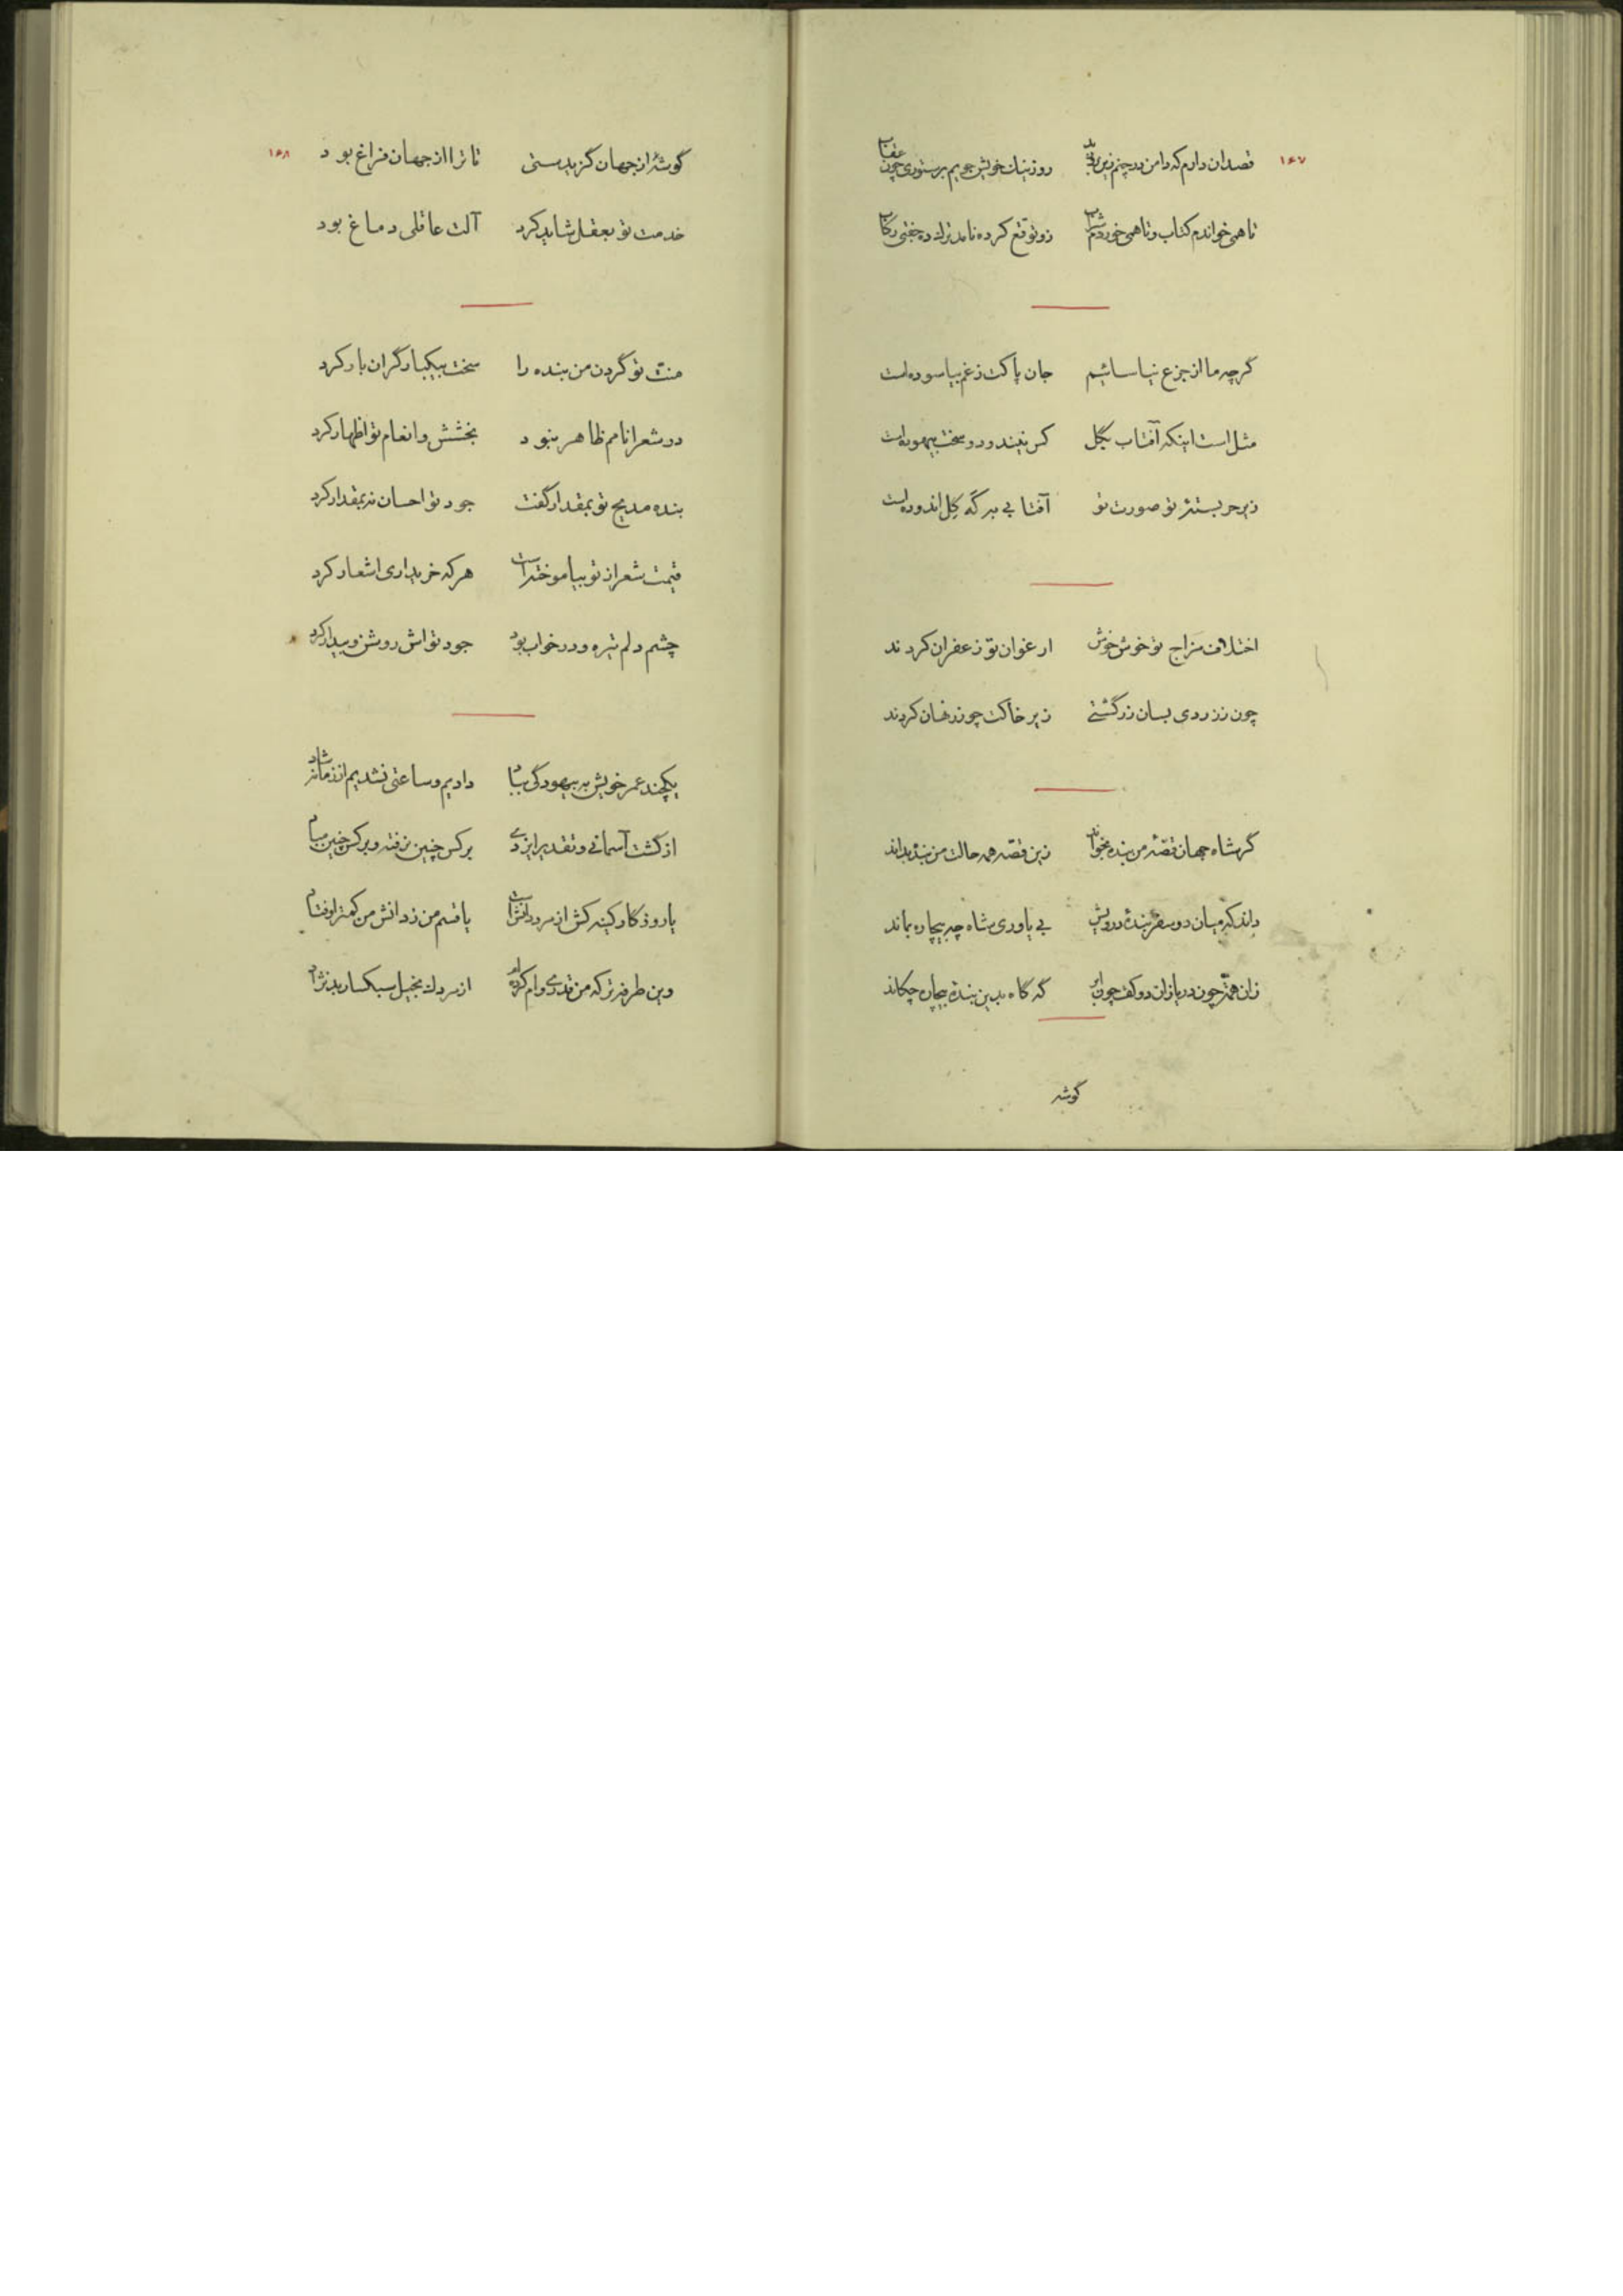 ۱۶۷
قصد ان دارم که دامن در چنم زین روزنیک خویش جویم بر ستوری چون عقاب
تا همی خواندم کتاب و تا همی خوردم شراب زو توقع کرده نامد ترك ده جفتی رکاب
گرچه ما از جزع نیاسائیم جان پاکت ز غم بیاسوده است
مثل است اینکه آفتاب بگل کس نیندود و سخت بیهوده است
زیر حر بستهٔ تو صورت تو آفتابی به رگه گل اندوده است
اختلاف مزاج تو خوش خوش ارغوان تو زعفران کردند
چون ز زردی بسان زر گشتی زیر خاکت چو زر نهان کردند
گر شاه جهان قصّهٔ من بنده بخواند زین قصّه همه حالت من بنده بداند
داند که میان دو سفر بندهٔ درویش بی یاوری شاه چه بیچاره بماند
زان همّت چون دریا زان دو کف چون ابر گه گاه بدین بندهٔ بیچاره چکاند
گوشه
۱۶۸
گوشهٔ از جهان گزیدستی تا ترا از جهان فراغ بود
خدمت تو بعقل شاید کرد آلت عاقلی دماغ بود
منت تو گردن من بنده را سخت بیکبار گران بار کرد
در شعرا نامم ظاهر نبود بخشش و انعام تو اظهار کرد
بنده مدیح تو بمقدار گفت جود تو احسان نه بمقدار کرد
قیمت شعر از تو بیاموخته است هر که خریداری اشعار کرد
چشم دلم تیره و در خواب بود جود تواش روشن و بیدار کرد
یکچند عمر خویش به بیهودگی بباد دادیم و ساعتی نشدیم از زمانه شاد
از گشت آسمانی و تقدیر ایزدی بر کس چنین نرفته و بر کس چنین مباد
یا روزگار کینه کش از مرد دانش است یا قسم من ز دانش من کمتر اوفتاد
وین طرفه تر که من قدری وام کرده ام از مردك بخیل سبکسار بدنژاد